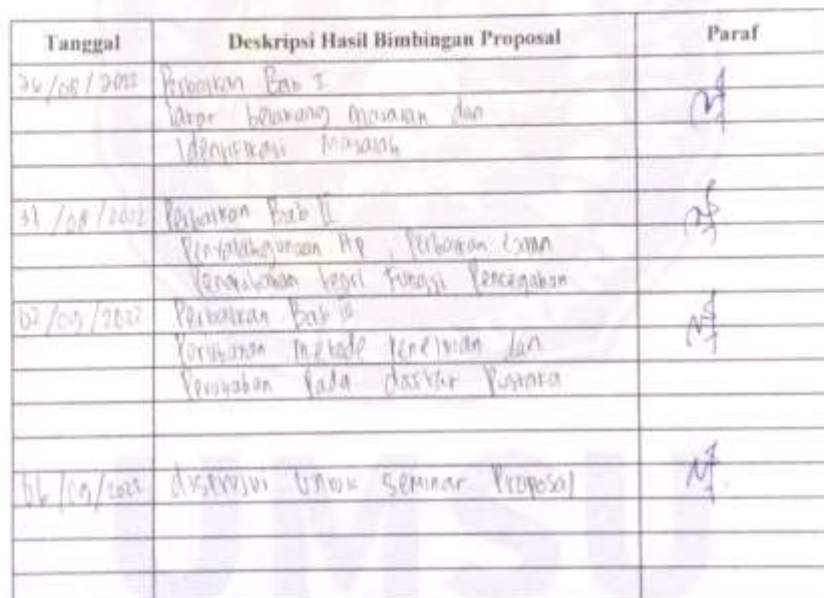 Tanggal Deskripsi Hasil Bimbingan Proposal Paraf
26/08/2022 Perbaikan Bab I
latar belakang masalah dan
Identifikasi Masalah
31/08/2022 Perbaikan Bab II
Penyalahgunaan Hp, Perbaikan
teori Fungsi Pencegahan
02/09/2022 Perbaikan Bab III
Perubahan metode Penelitian dan
Perubahan Pada daftar Pustaka
06/09/2022 disetujui untuk seminar Proposal
UMSU